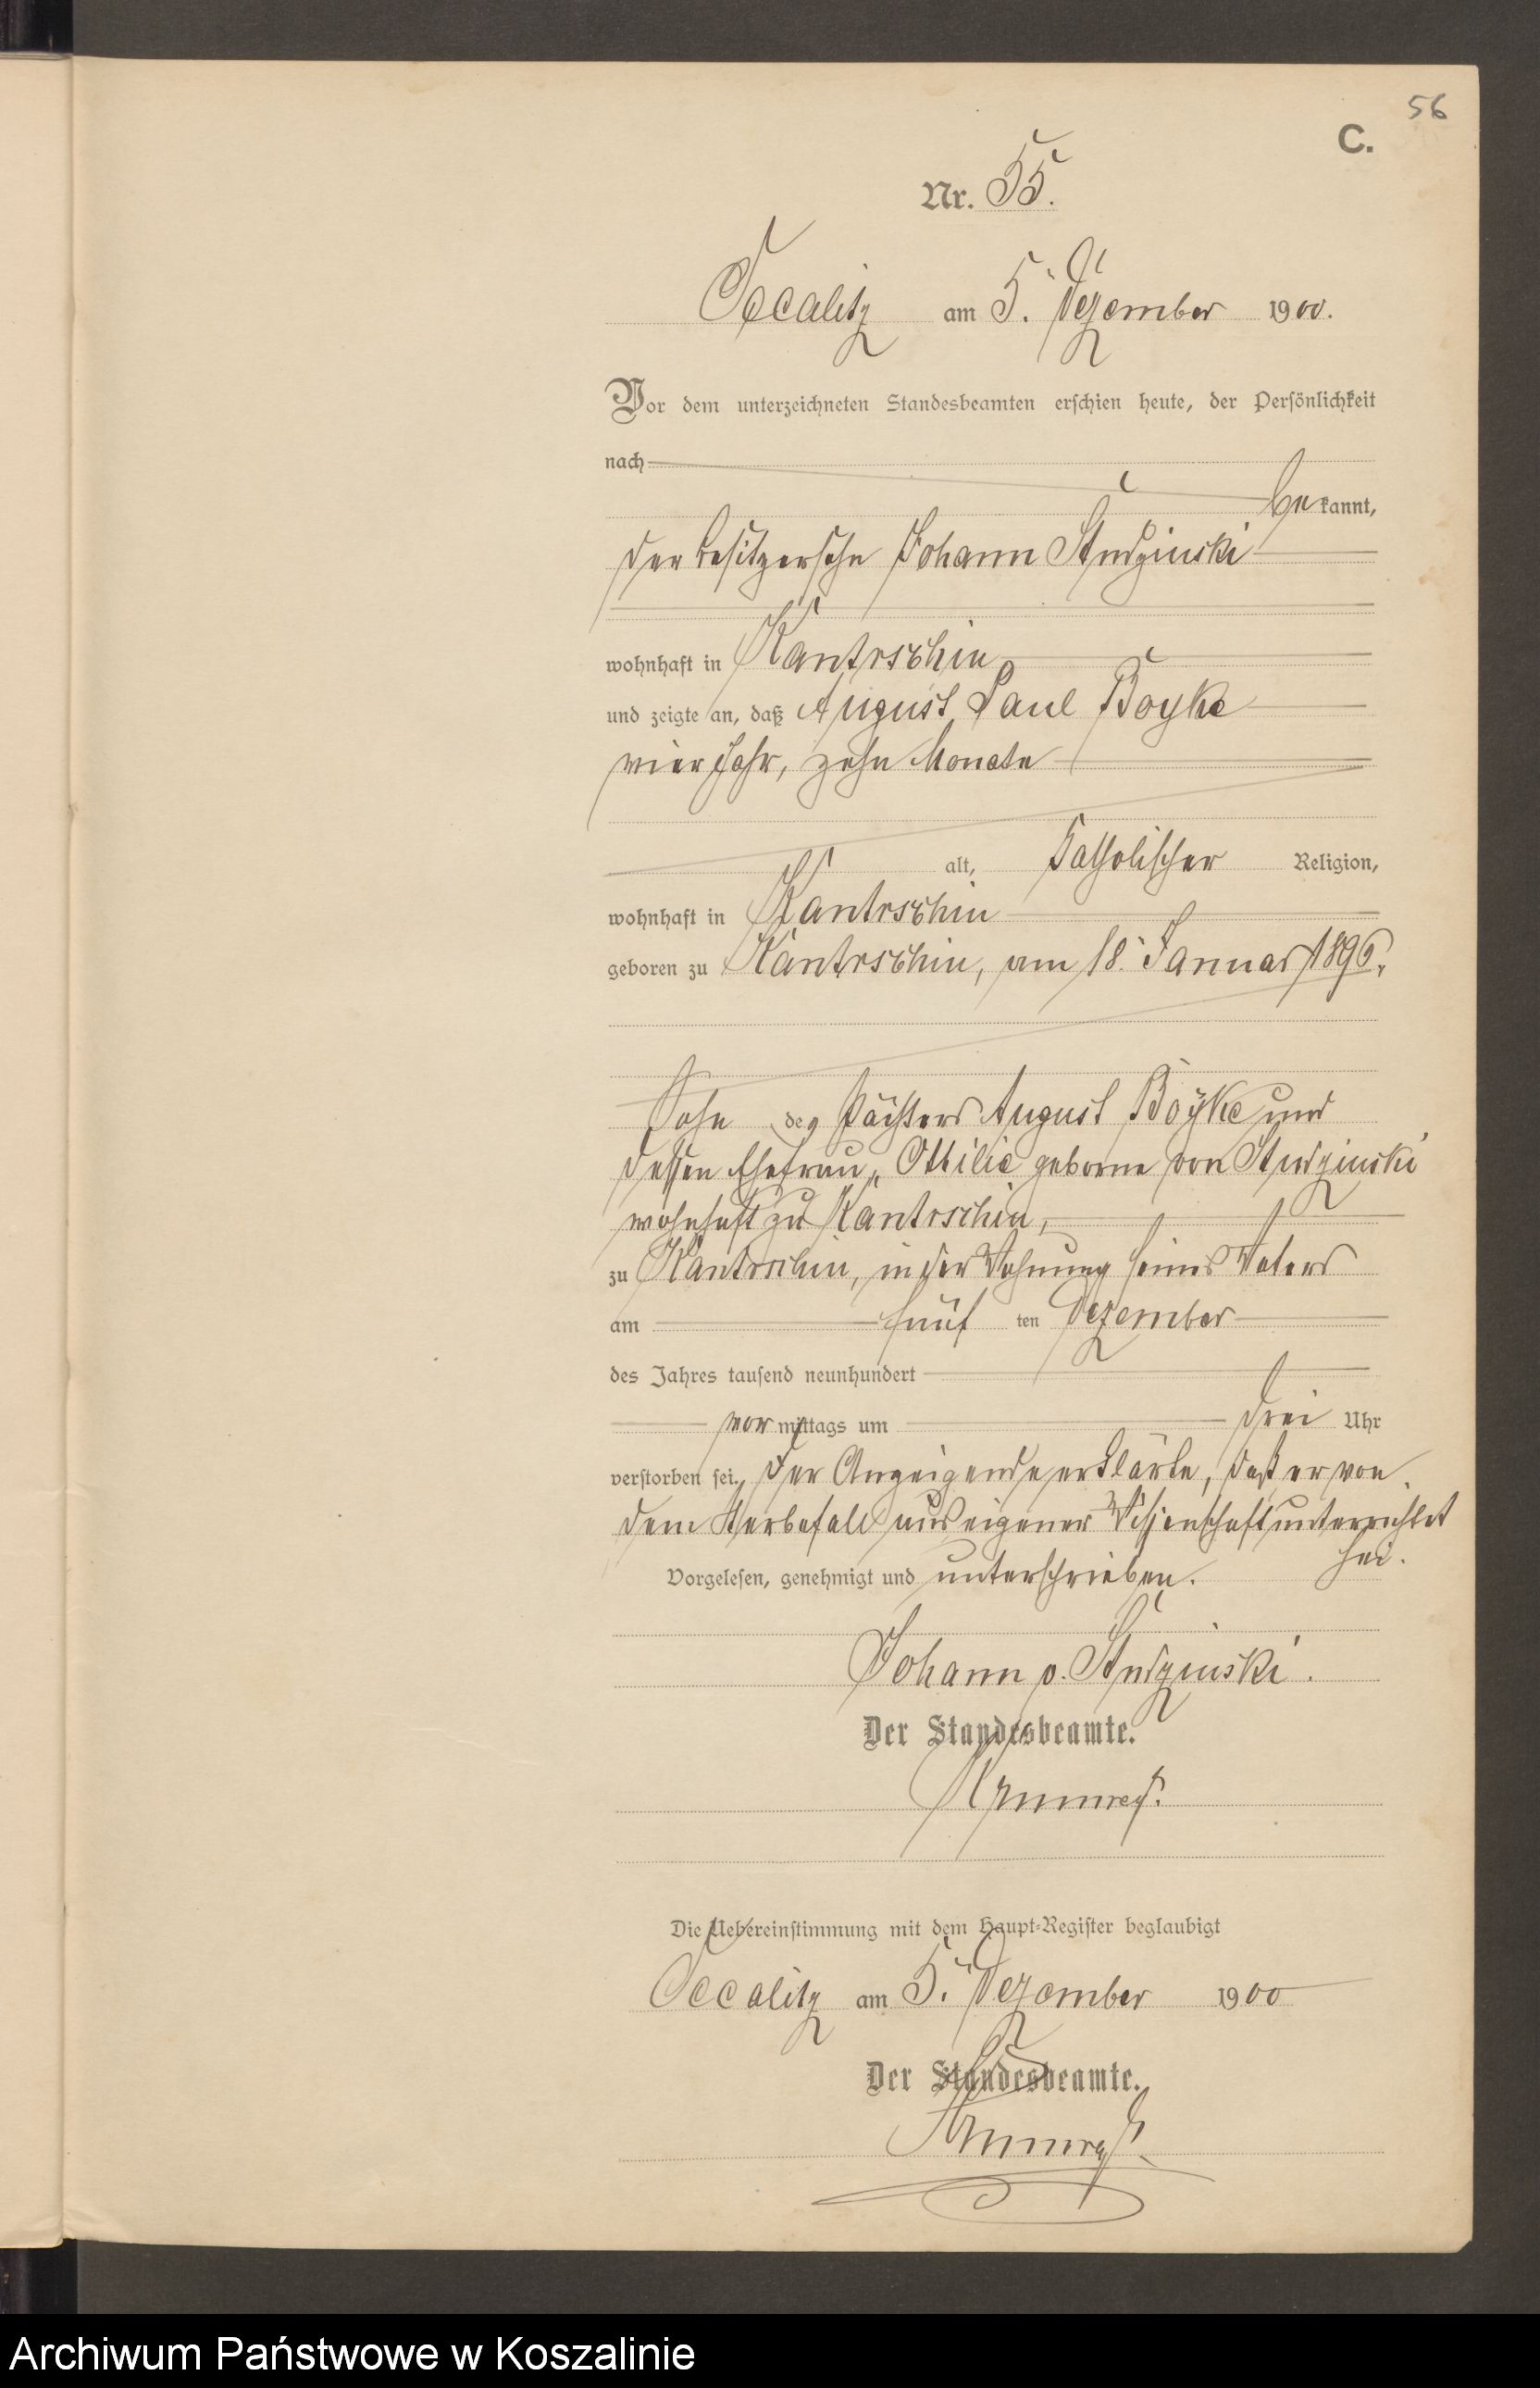 56
C.
Nr. 55.
Tccalitz am 5. Dezember 1900.
Vor dem unterzeichneten Standesbeamten erschien heute, der Persönlichkeit
nach
bekannt,
der Besitzersohn Johann Studzinski
wohnhaft in Kantrschin
und zeigte an, daß August Paul Boyke
vier Jahr, zehn Monate
alt, katholischer Religion,
wohnhaft in Kantrschin
geboren zu Kantrschin, am 18. Januar 1896,
Sohn des Pächters August Boyke und
dessen Ehefrau, Ottilie geborne von Studzinski
wohnhaft zu Kantrschin,
zu Kantrschin, in der Wohnung seines Vaters
am fünf ten Dezember
des Jahres tausend neunhundert
vor mittags um drei Uhr
verstorben sei. Der Anzeigende erklärte, daß er von
dem Sterbefall aus eigener Wissenschaft unterrichtet
sei.
Vorgelesen, genehmigt und unterschrieben.
Johann v. Studzinski.
Der Standesbeamte.
Die Uebereinstimmung mit dem Haupt-Register beglaubigt
am 5. Dezember 1900
Der Standesbeamte.
Archiwum Państwowe w Koszalinie